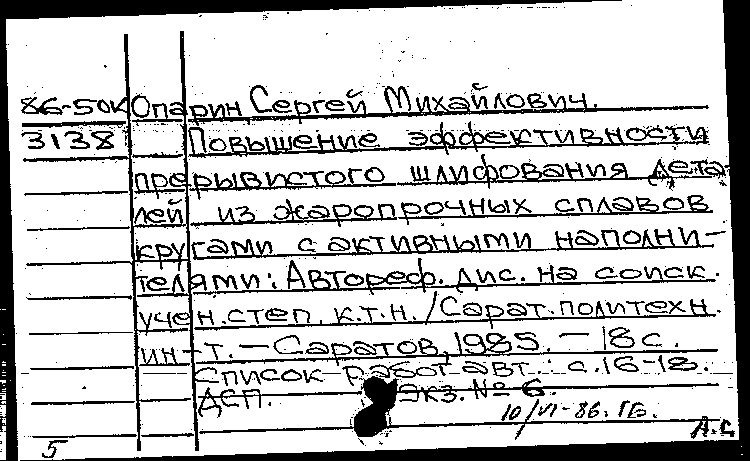 86-50К Опарин, Сергей Михайлович.
3138 Повышение эффективности
прерывистого шлифования дета-
лей из жаропрочных сплавов
кругами с активными наполни-
телями: Автореф. дис. на соиск.
учен. степ. к.т.н. / Сарат. политехн.
ин-т. - Саратов, 1985. - 18 с.
Список работ авт.: с. 16-18.
ДСП. Экз. № 6.
10/VI-86. ГБ.
А.С.
5